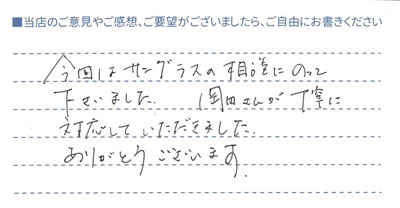 ■当店のご意見やご感想、ご要望がございましたら、ご自由にお書きください
今回はサングラスの相談にのって
下さいました。 岡田さんが丁寧に
対応していただきました。
ありがとうございます。